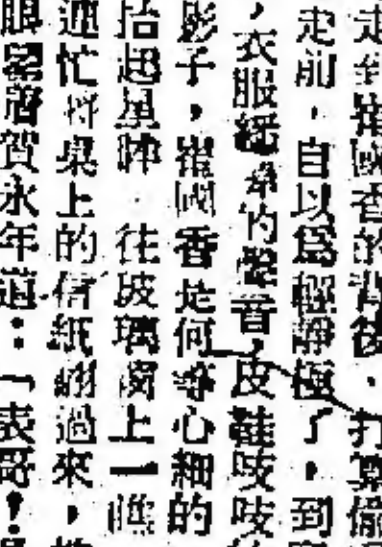 走到崔國香的背後，打算偷
走前，自以爲輕靜極了，到
，衣服綷縩的聲音，皮鞋吱吱
影子，崔國香是何等心細的
抬起星眸，往玻璃窗上一瞧
連忙將桌上的信紙翻過來，
眼望着賀永年道：「表哥！